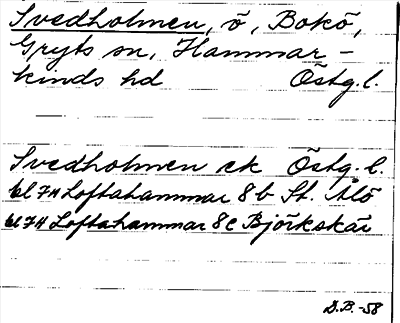 Svedholmen, ö, Bokö,
Gryts sn, Hammar-
kinds hd Östg.l.
Svedholmen ek Östg.l.
bl 7H Loftahammar 8b St. Alö
bl 7H Loftahammar 8c Björkskär
D.B.-58